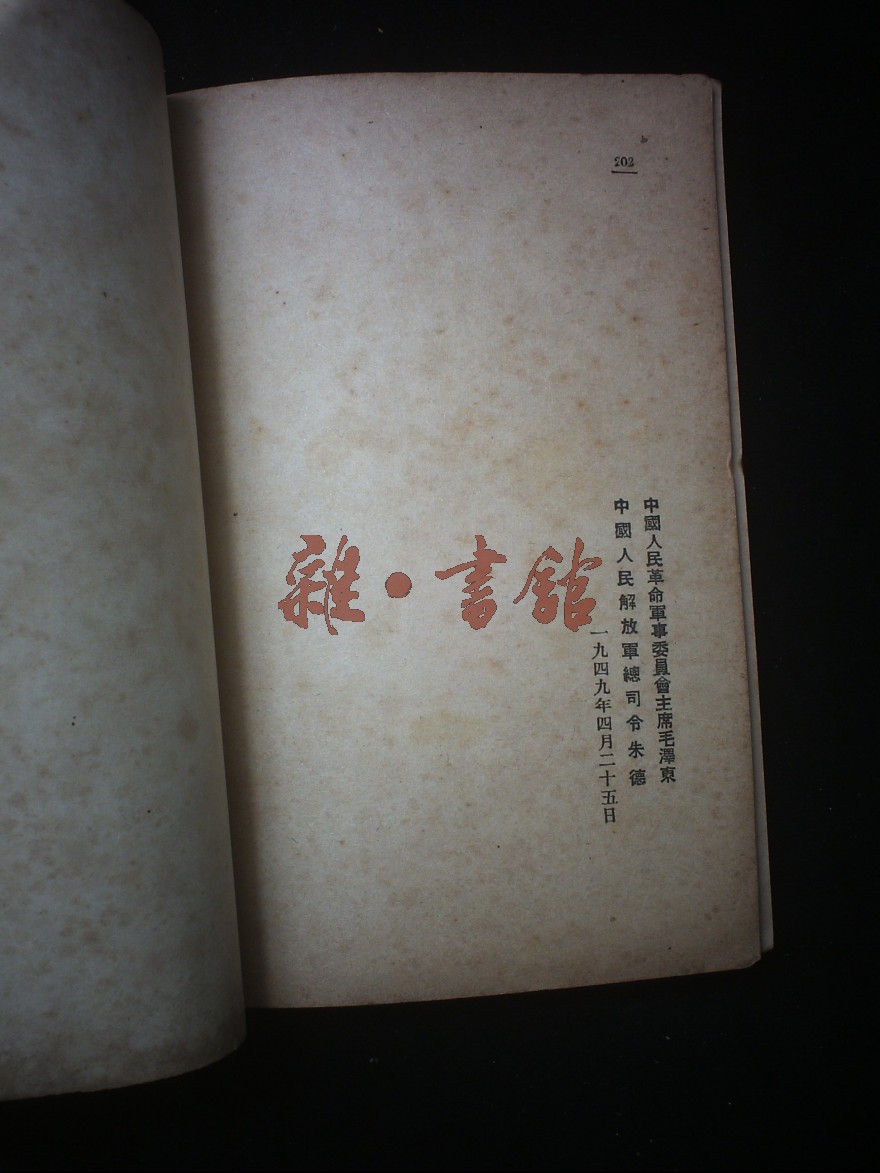 202
中國人民革命軍事委員會主席毛澤東
中國人民解放軍總司令朱德
一九四九年四月二十五日
雜·書館